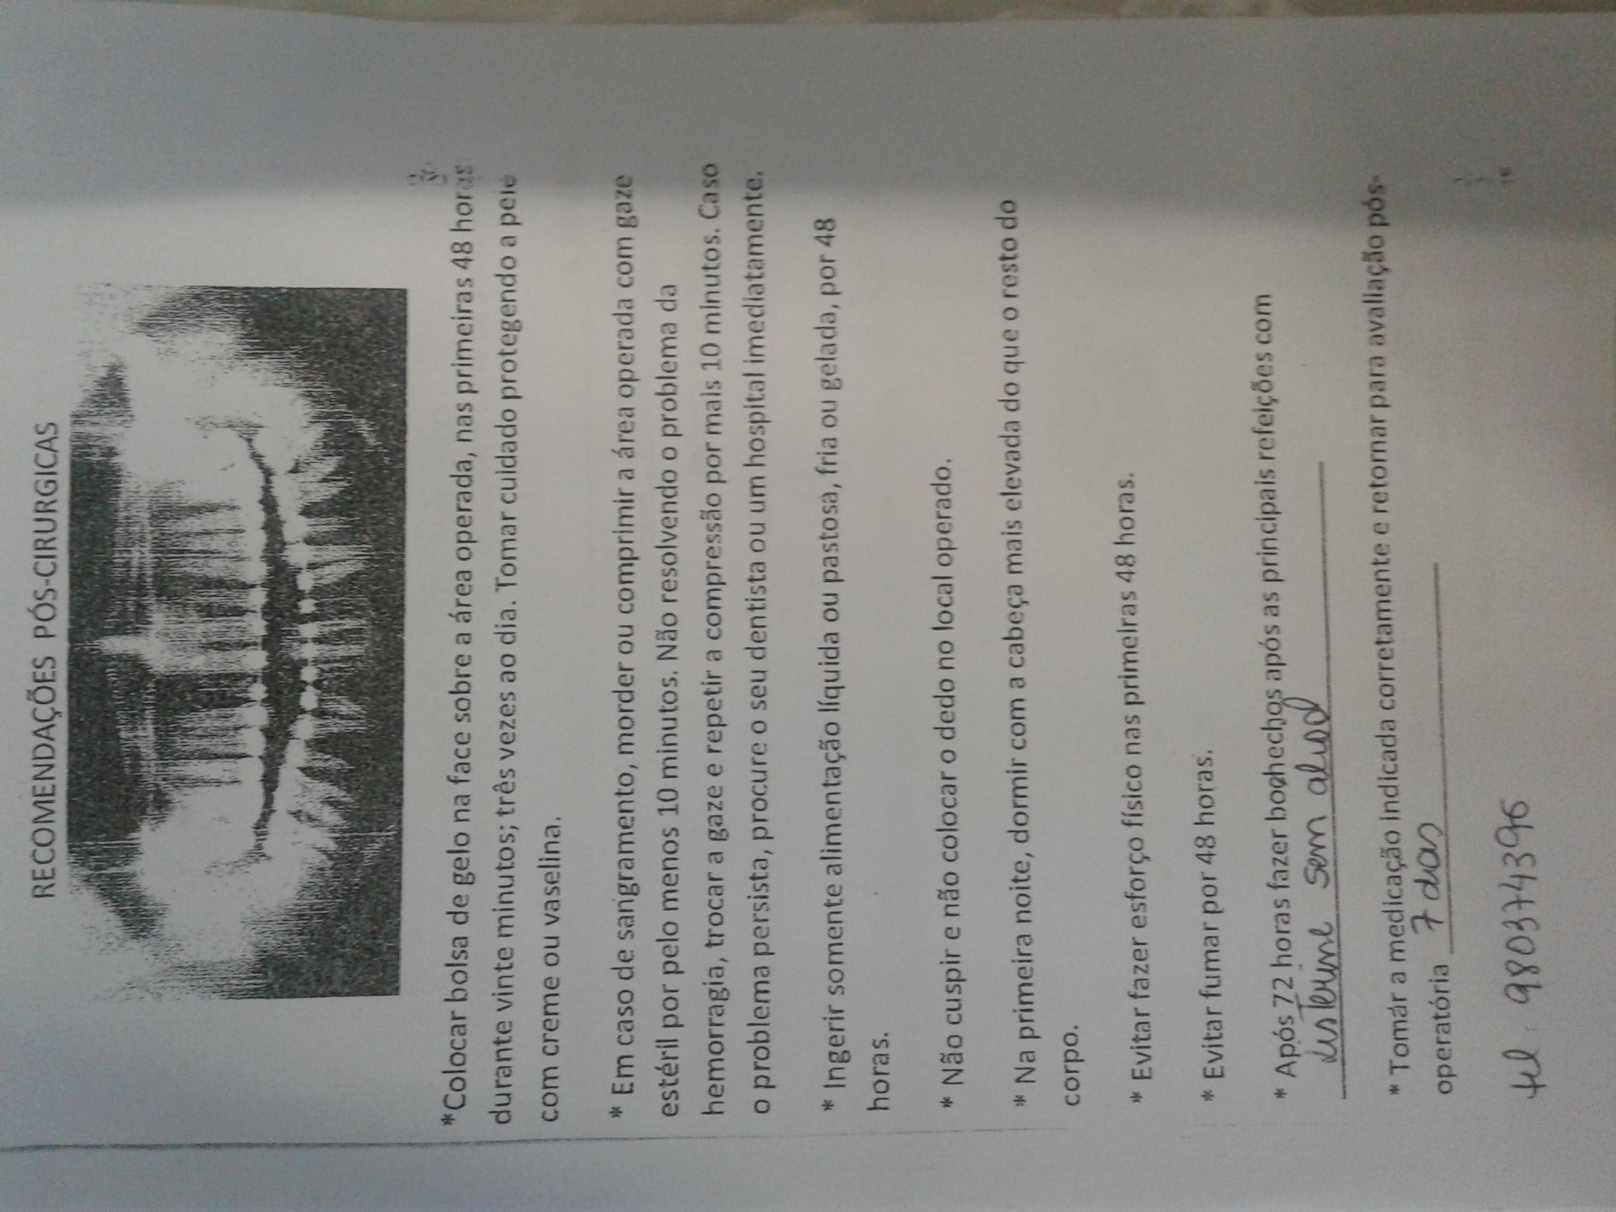 RECOMENDAÇÕES PÓS-CIRURGICAS
*Colocar bolsa de gelo na face sobre a área operada, nas primeiras 48 horas
durante vinte minutos; três vezes ao dia. Tomar cuidado protegendo a pele
com creme ou vaselina.
* Em caso de sangramento, morder ou comprimir a área operada com gaze
estéril por pelo menos 10 minutos. Não resolvendo o problema da
hemorragia, trocar a gaze e repetir a compressão por mais 10 minutos. Caso
o problema persista, procure o seu dentista ou um hospital imediatamente.
* Ingerir somente alimentação líquida ou pastosa, fria ou gelada, por 48
horas.
* Não cuspir e não colocar o dedo no local operado.
* Na primeira noite, dormir com a cabeça mais elevada do que o resto do
corpo.
* Evitar fazer esforço físico nas primeiras 48 horas.
* Evitar fumar por 48 horas.
* Após 72 horas fazer bochechos após as principais refeições com
listerine sem alcool
* Tomar a medicação indicada corretamente e retornar para avaliação pós-
operatória 7 dias
tel: 980374396